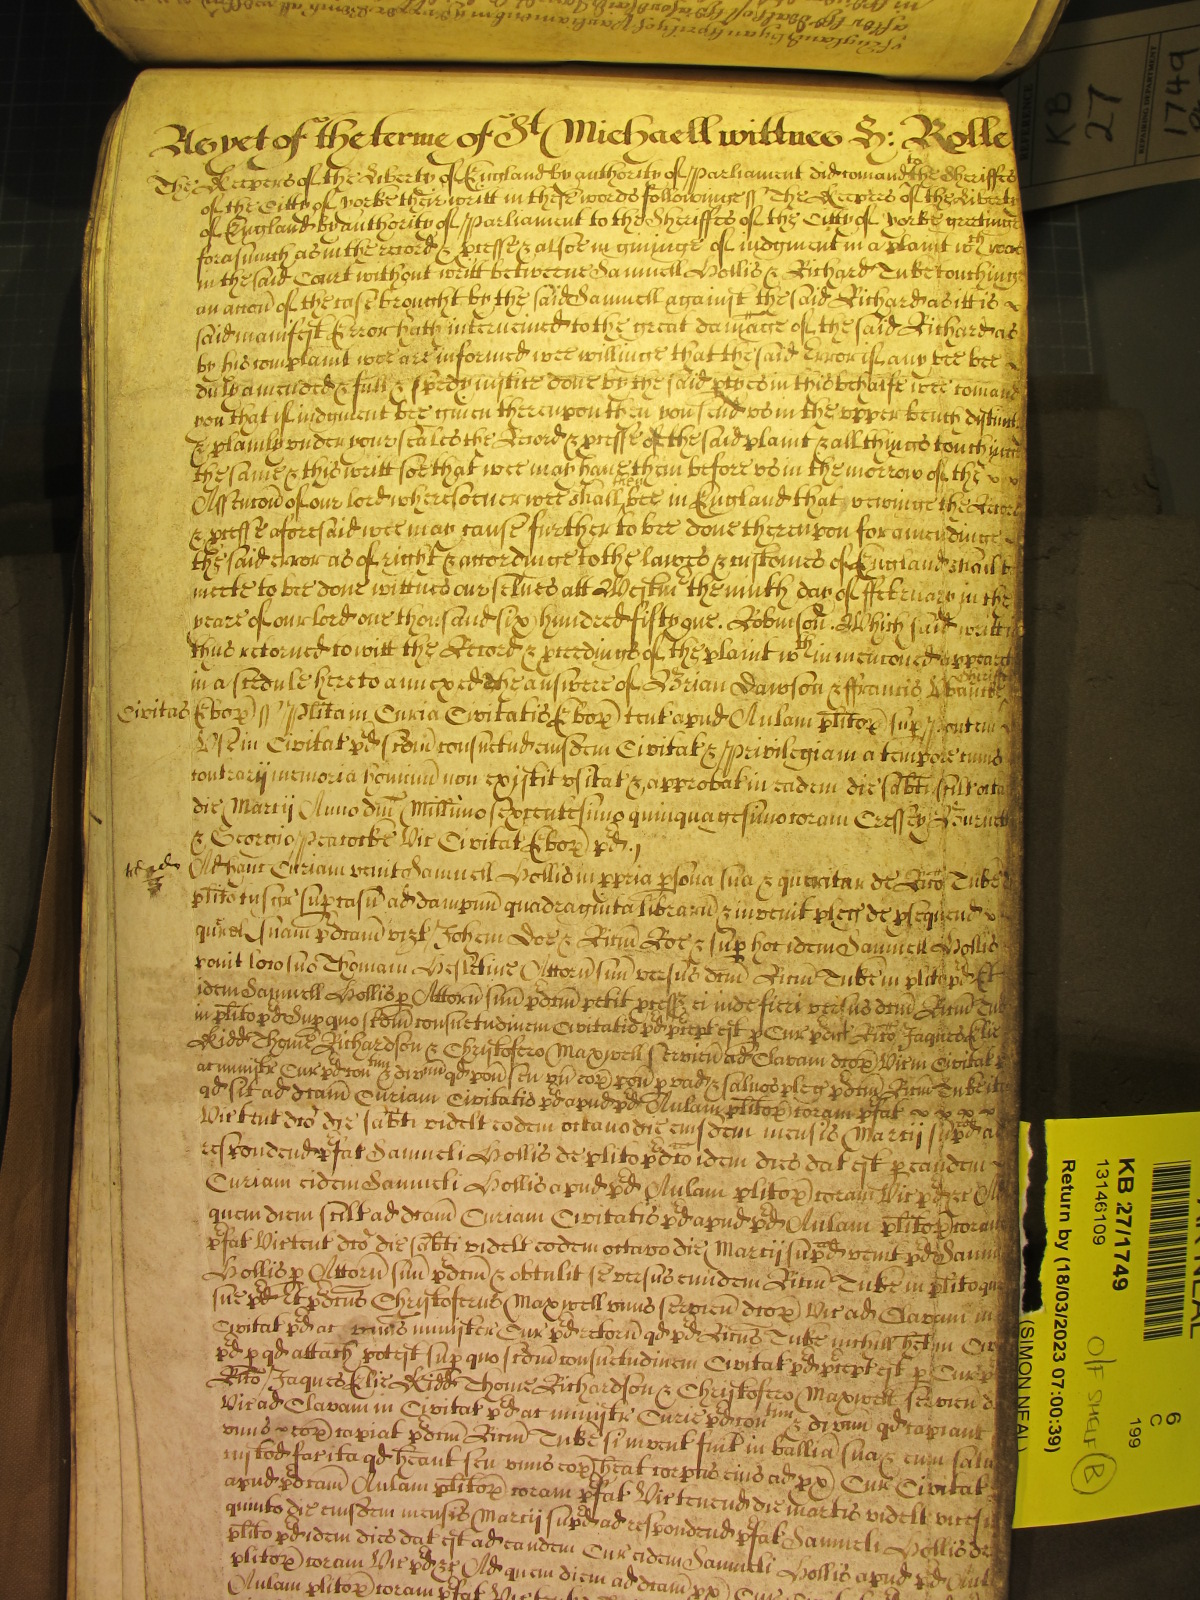 As yet of the terme of St Michaell wittnes H: Rolle
The Keepers of the Liberty of England by authority of Parliament did comand to the Sheriffes
of the Citty of yorke their writt in these words followinge ss The Keepers of the Liberty
of England by authority of Parliament to the Sheriffes of the Citty of yorke greetinge
forasmuch as in the record & p'cesse & alsoe in givinge of iudgment in a plaint wch was
in the said Court without writt betweene Samuell Hollis & Richard Tuke touchinge
an accon of the case brought by the said Samuell against the said Richard as itt is
said manifest Error hath intervened to the great damage of the said Richard as
by his complaint wee are informed wee willinge that the said Error if any bee bee
duly amended & full & spedy iustice done by the said ptyes in this behalfe wee comand
you that if iudgment bee given thereupon then you send us in the upper bench distinct
& plainly under your seales the Record & p'cesse of the said plaint & all things touchinge
the same & this writt soe that wee may have them before us in the morrow of the
Assencon of our lord wheresoever wee shall then bee in England that vewinge the Record
& p'cesse aforesaid wee may cause further to bee done thereupon for amendinge
the said error as of right & accordinge to the lawes & customes of England shall b
meete to bee done wittnes our selves att Westm' the ninth day of ffebruary in the
yeare of our lord one thousand six hundred fifty one. Robinson. Which said writt is
thus retorned to witt the Record & p'cedings of the plaint wthin menconed appeareth
in a scedule hereto annexed the answere of Brian Dawson & ffrancis Sheriffs
Civitas Ebor' ss Plita in Curia Civitatis Ebor' tent apud Aulam plitor' sup' Pontem
Use in Civitat' pd' scdm consuetud' eiusdem Civitat' & Privilegia in a tempore cuius
contrarij memoria hominu' non existit usitat' & approbat' in eadem die sabti scilt octa
die Martij Anno dni' Millimo sexcentesimo quinquagesimo coram Cressey Bourne
& Georgio Peacocke Vic' Civitat' Ebor' pd'.
Ad hanc Curiam venit Samuell Hollis in ppria psona sua & querit' de Rico' Tuke
plito tnsgr' sup' casu' ad dampnu' quadraginta librar' & invenit pleg' de psequend'
querel' suam pdcam' vizt Johem Doe & Ricum Roe & sup' hoc idem Samuell Hollis
ponit loco suo Thomam Hesletine Attorn' suu' versus dcm' Ricum Tuke in plito pd' Et
idem Samuell Hollis p Attorn' suu' pdcm' petit p'cess' ei inde fieri versus dcm' Ricum Tu
in plito pd' Sup' quo scdm consuetudinem Civitatis pd' p'cept' est p Cur' pd' Rico' Jaques Elie
Kidd Thome' Richardson & Christofero Maxwell servien' ad Clavam dcor' Vicm Civitat' p
ac ministr' Cur' pd' & divim' qd' pon' seu un' eor' pon' p vad' & salvos pleg' pdcm' Ricum Tuke ita
qd' sit ad dcam' Curiam Civitatis pd' apud pd' Aulam plitor' coram pfat'
Vic' tent' dco' die sabti videlt eodem octavo die eiusdem mensis Martij supd' ad
respondend' pfat' Samueli Hollis de plito pd' idem dies dat' est p eandem
Curiam eidem Samueli Hollis apud pd' Aulam plitor' coram Vic' pd' &c Ad
quem diem scilt ad dcam' Curiam Civitatis pd' apud pd' Aulam plitor' coram
pfat' Vic' tent' dco' die sabti videlt eodem octavo die Martij supd' venit pd' Samue
Hollis p Attorn' suu' pdcm' & obtulit se versus eundem Ricum Tuke in plito que
sue pd' Et pdcus Christoferus Maxwell unus servien' dcor' Vic' ad Clavam in
Civitat' pd' ac unus minister Cur' pd' retorn' qd' pd' Ricus Tuke nichill het in Civ
pd' p qd' attach' potest sup' quo scdm consuetudinem Civitat' pd' p'cept' est p Cur' p
Rico' Jaques Elie Kidd Thome Richardson & Christofero Maxwell servien' d
Vic' ad Clavam in Civitat' pd' ac ministr' Curie pd' & divim' qd' capiant
unus eor' capiat pdcm' Ricum Tuke si invent' fuit in ballia' sua & eum salvo
custod' fac' ita qd' heant seu unus eor' heat corpus eius ad px' Cur' Civitat'
apud pdcam' Aulam plitor' coram pfat' Vic' tenend' die martis videlt vices
quinto die eiusdem mensis Martij supd' ad respondend' pfat' Samueli Hollis de
plito pd' idem dies dat' est ad eandem Cur' eidem Samueli Hollis apud pd' Aul
plitor' coram Vic' pd' &c Ad quem diem ad dcam' px'
Aulam plitor' coram pfat' Vic'
KB
27
1749
REFERENCE
KB 27/1749
13146109
Return by (18/03/2023 07:00:39)
(SIMON NEAL)
6
C
199
O/S SHELF B